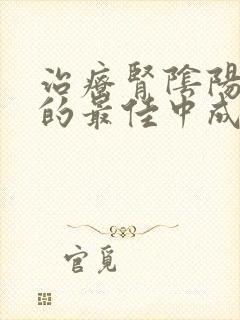 治療腎陰陽
的最佳中成
官覓